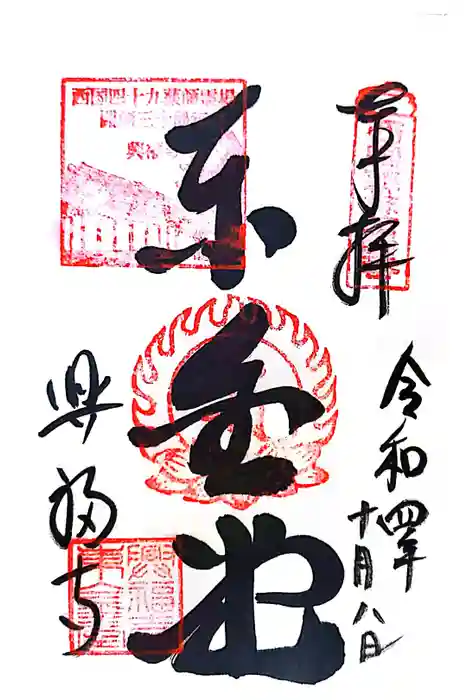 奉拝
令和四年
十月八日
東金堂
西国四十九薬師霊場
興福寺
興福寺東金堂